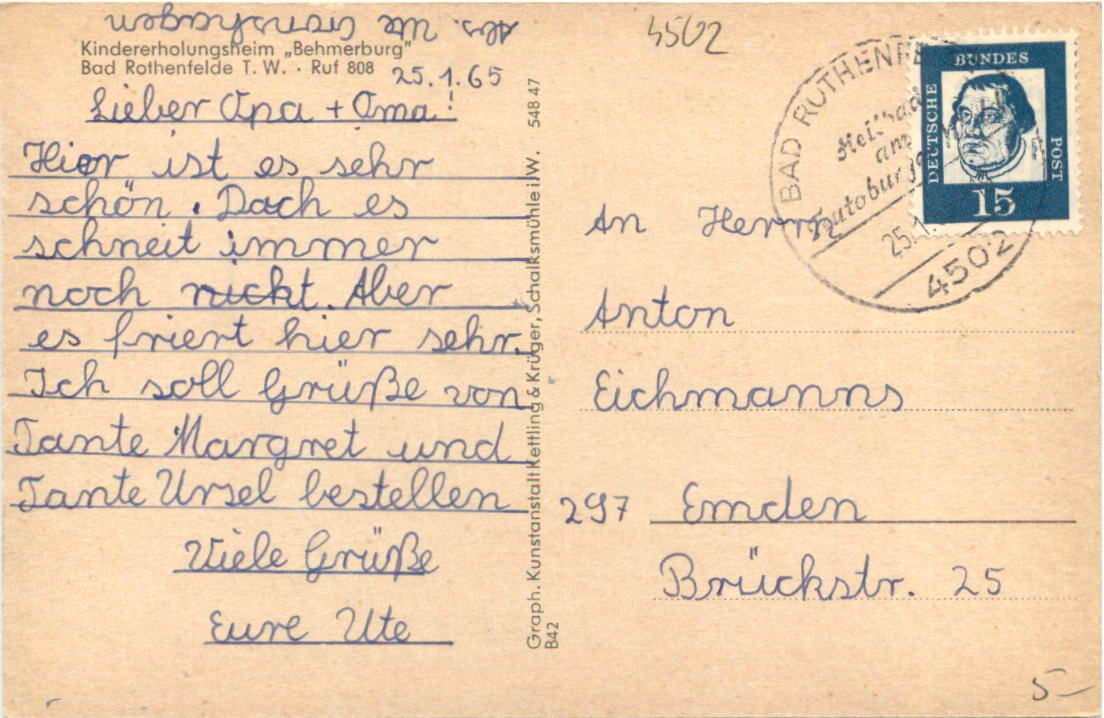 Abs. Ute
4502
Kindererholungsheim „Behmerburg"
Bad Rothenfelde T. W. · Ruf 808
25.1.65
Lieber Opa + Oma!
Hier ist es sehr
schön. Doch es
schneit immer
noch nickt. Aber
es friert hier sehr.
Ich soll Grüße von
Tante Margret und
Tante Ursel bestellen
Viele Grüße
Eure Ute
Graph. Kunstanstalt Kettling & Krüger, Schalksmühle i. W. 548 47
B42
BAD ROTHENFE
Heilbad
am
Teutoburg
25.1.
4502
DEUTSCHE
BUNDES
POST
15
An Herrn
Anton
Eichmanns
297 Emden
Brückstr. 25
5-